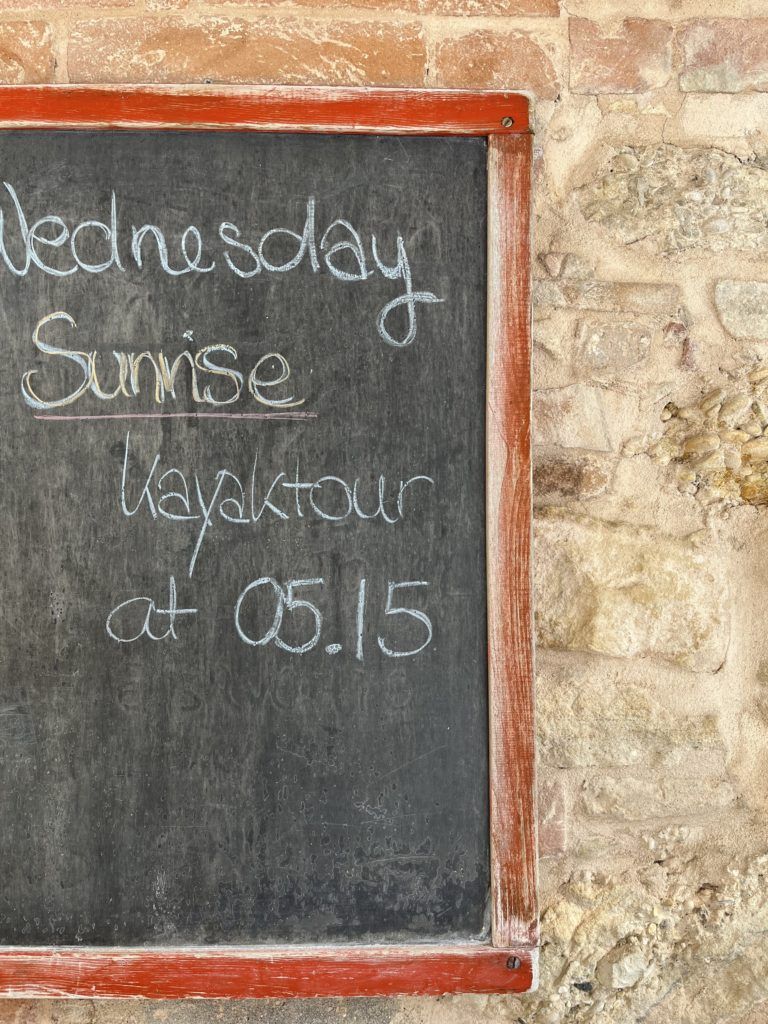 Wednesday
Sunrise
Kayaktour
at 05.15